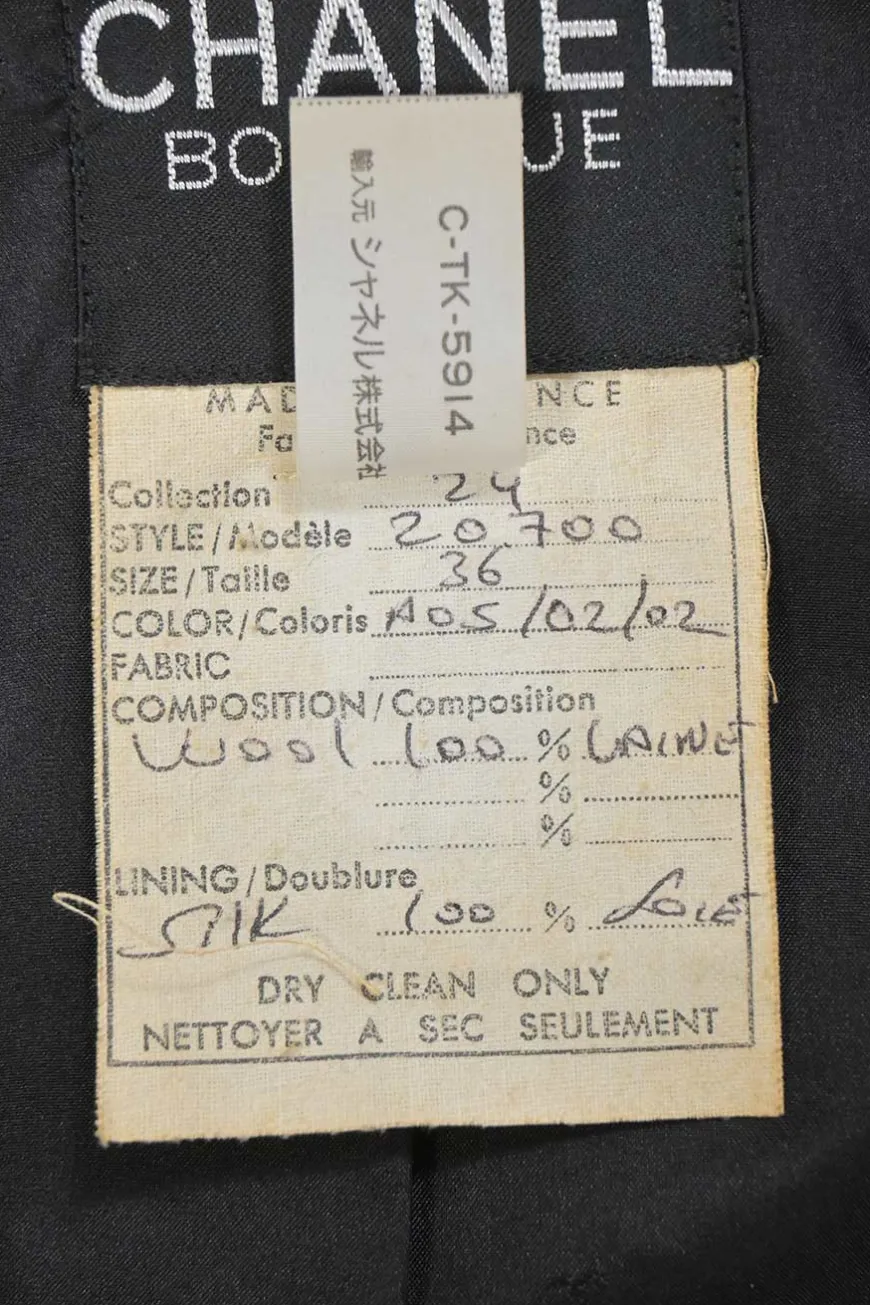 CHANEL
BO UE
輸入元 シャネル株式会社
C-TK-5914
MAD NCE
Fa nce
Collection 24
STYLE/Modèle 20.700
SIZE/Taille 36
COLOR/Coloris A05/02/02
FABRIC
COMPOSITION/Composition
Wool 100 % LAINE
%
%
LINING/Doublure
SILK 100 % SOIE
DRY CLEAN ONLY
NETTOYER A SEC SEULEMENT